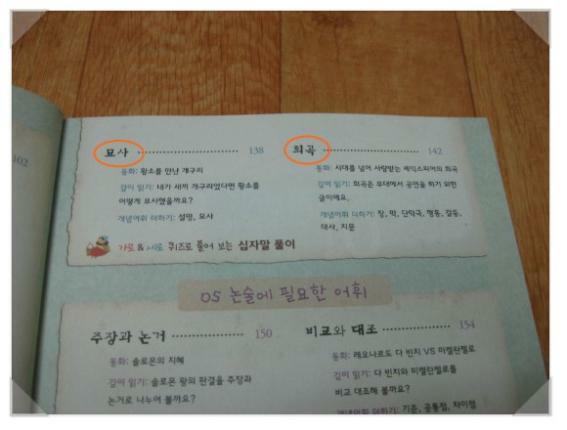 102
묘사 138
동화: 황소를 만난 개구리
깊이 읽기: 내가 새끼 개구리였다면 황소를
어떻게 묘사했을까요?
개념어휘 더하기: 설명, 묘사
희곡 142
동화: 시대를 넘어 사랑받는 셰익스피어의 희곡
깊이 읽기: 희곡은 무대에서 공연을 하기 위한
글이에요.
개념어휘 더하기: 장, 막, 단막극, 행동, 갈등,
대사, 지문
가로 & 세로 퀴즈로 풀어 보는 십자말 풀이
05 논술에 필요한 어휘
주장과 논거 150
동화: 솔로몬의 지혜
깊이 읽기: 솔로몬 왕의 판결을 주장과
논거로 나누어 볼까요?
비교와 대조 154
동화: 레오나르도 다 빈치 VS 미켈란젤로
깊이 읽기: 다 빈치와 미켈란젤로를
비교 대조해 볼까요?
개념어휘 더하기: 기준, 공통점, 차이점